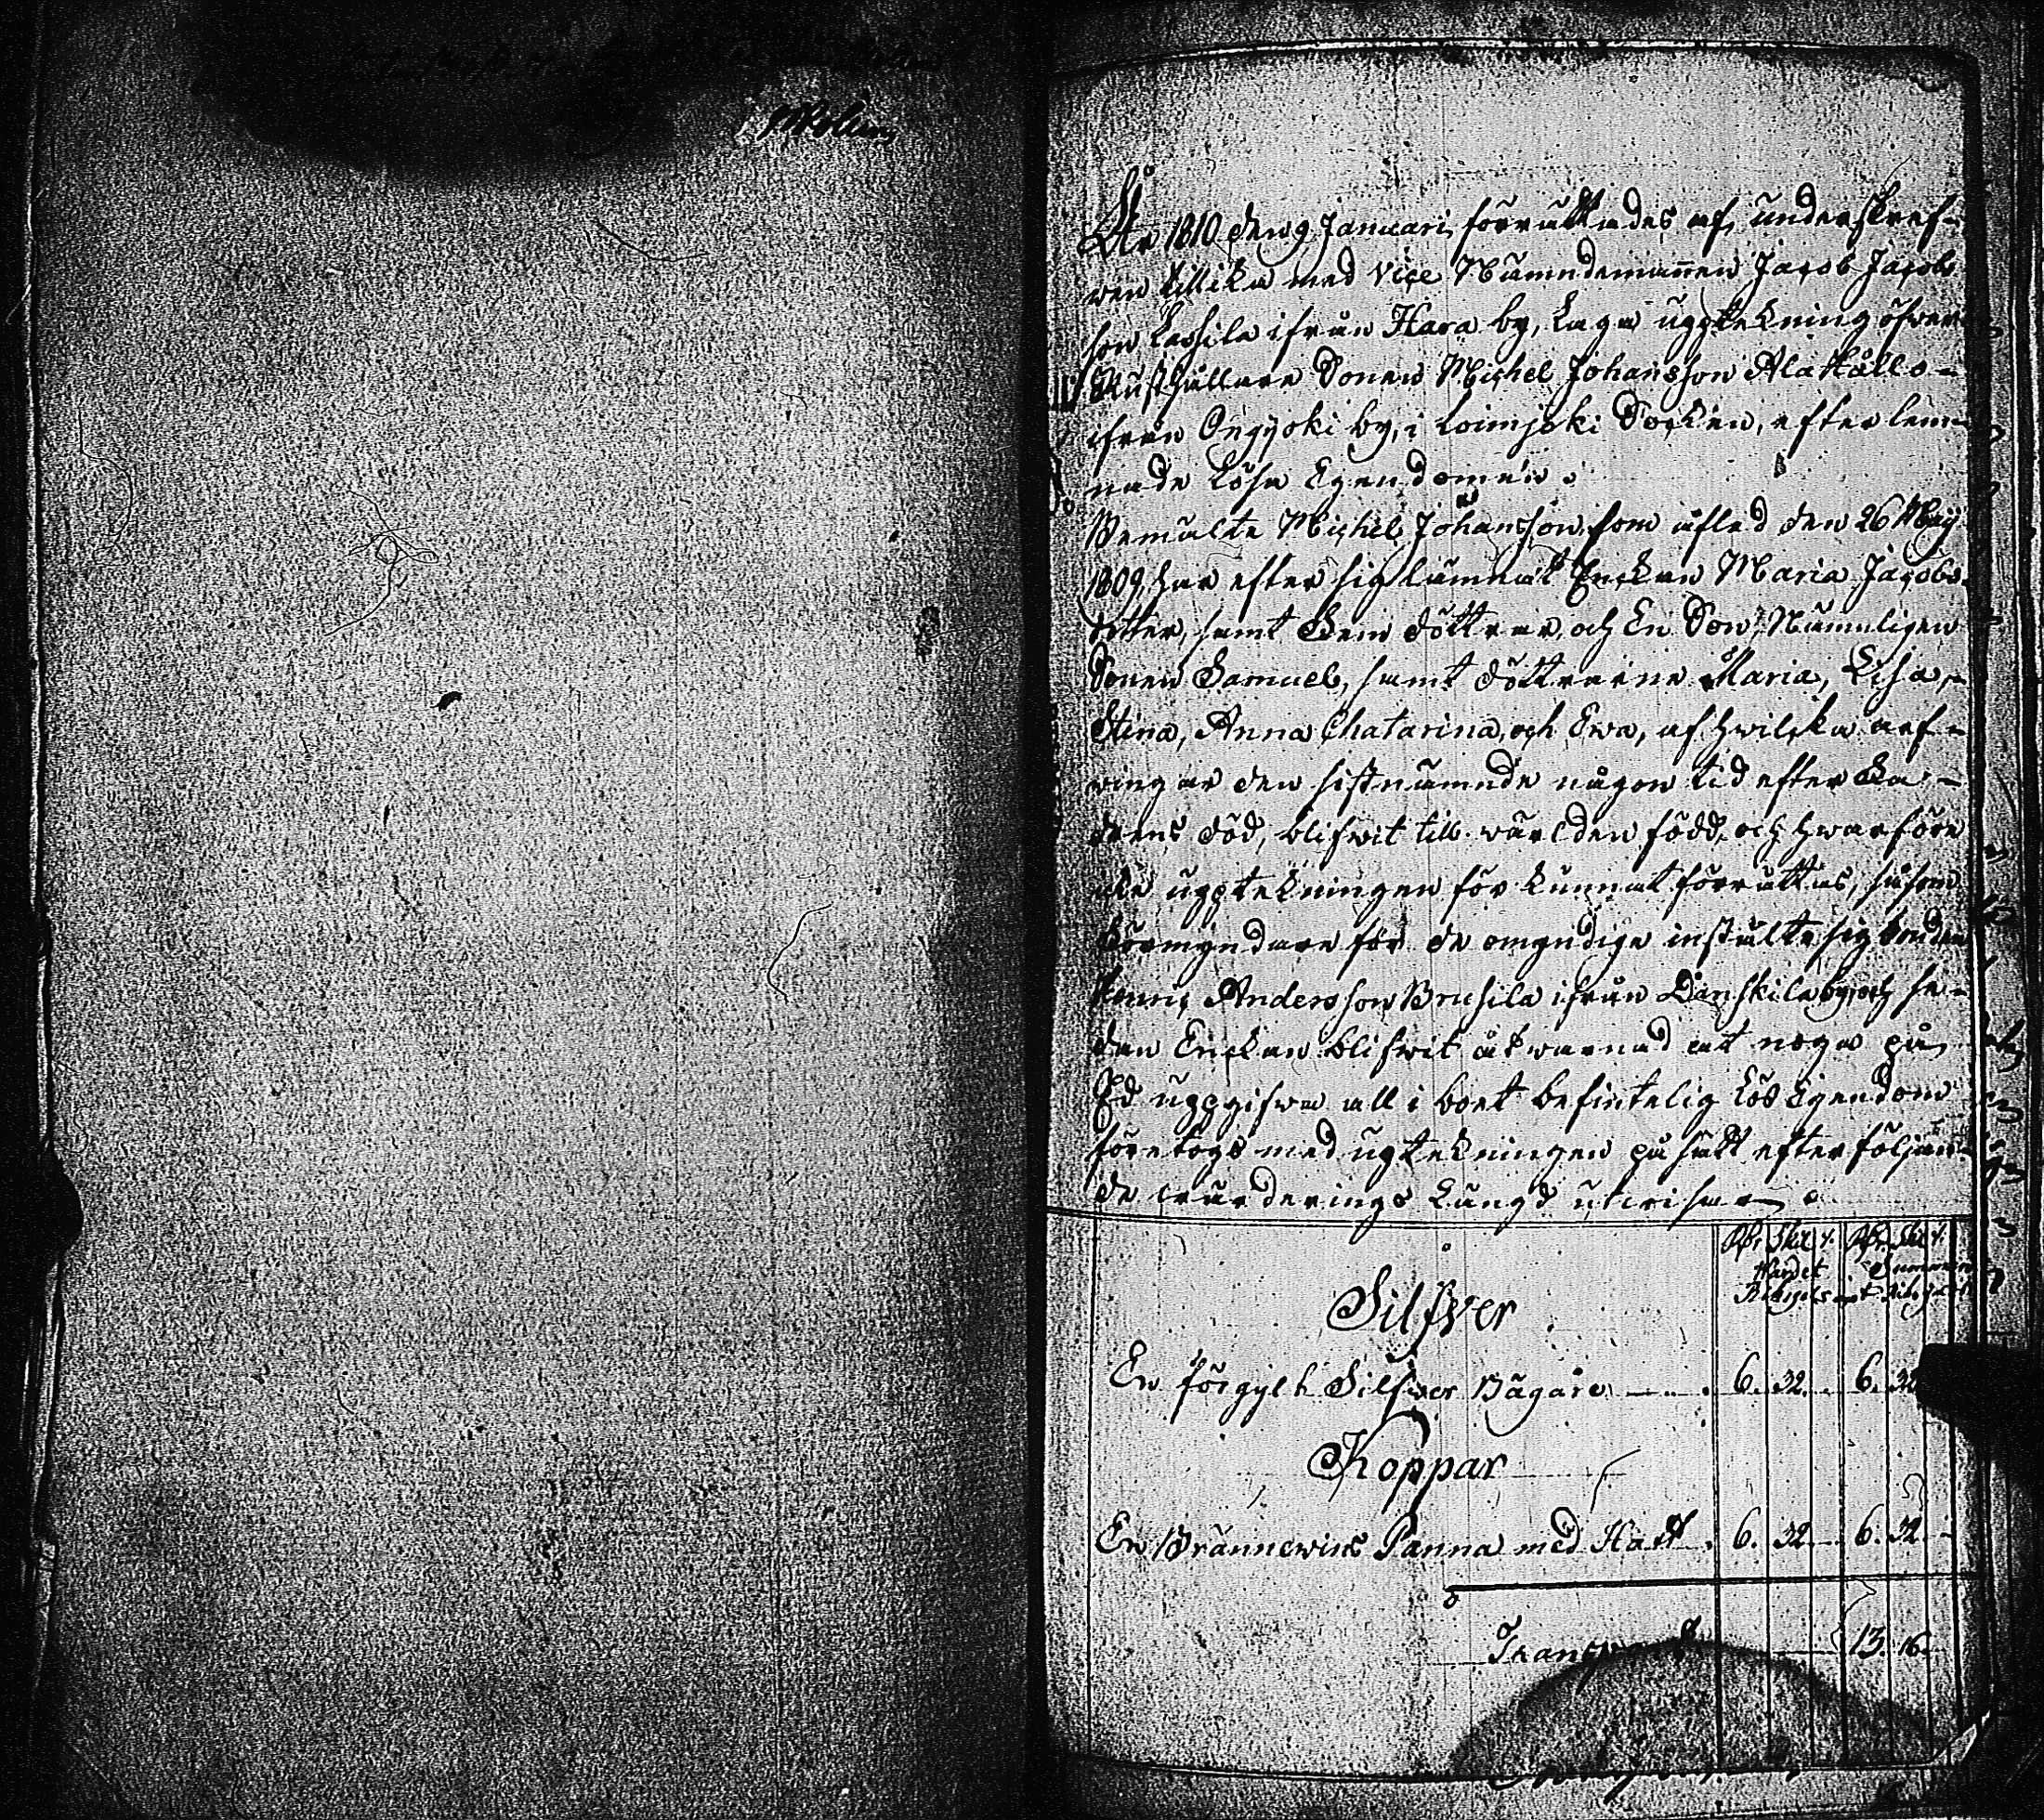 År 1810 den 9 Januari, förrättades af underskref-
ven tillika med Vice Nämndemannen Jacob Jacobs
son Cassila ifrån Hara by, Laga uppteckning öfver
Rusthållare Sonen Michel Johansson Alakallo-
ifrån Ongyoki by, i Loimjoki Socken, efter lem-
nade Lösa Egendomen.
Bemälte Michel Johansson, som afled den 26 Maij
1809, har efter sig lämnat Enckan Maria Jacobs
dotter, samt Fem döttrar, och En Son, Nämnligen
Sonen Samuel, samt döttrarne Maria, Lisa,
Stina, Anna Chatarina, och Ewa, af hwilcka arf-
wingar den sistnämnde någon tid efter Fa-
drens död, blifwit till wärlden född, och hwarföre
icke upptekningen för kunnat förrättas, såsom
Förmyndare för de omyndige instälte sig bonden
Henric Andersson Brusila ifrån Länskila by, och se-
dan Enckan blifwit åtwarnad att noga på
Ed uppgifwa all i boet befintelig Lös Egendom
företogs med upptekningen på sätt efter följan-
de wärderings Längd utwisar.
Rdr Skl r. Rdr Skl r.
Wärdet Summan
Silfver
En förgylt Silfwer Bägare 6. 32. 6. 32
Koppar
En Brännewins Panna med Hatt 6. 32. 6. 32.
Transport 13. 16.